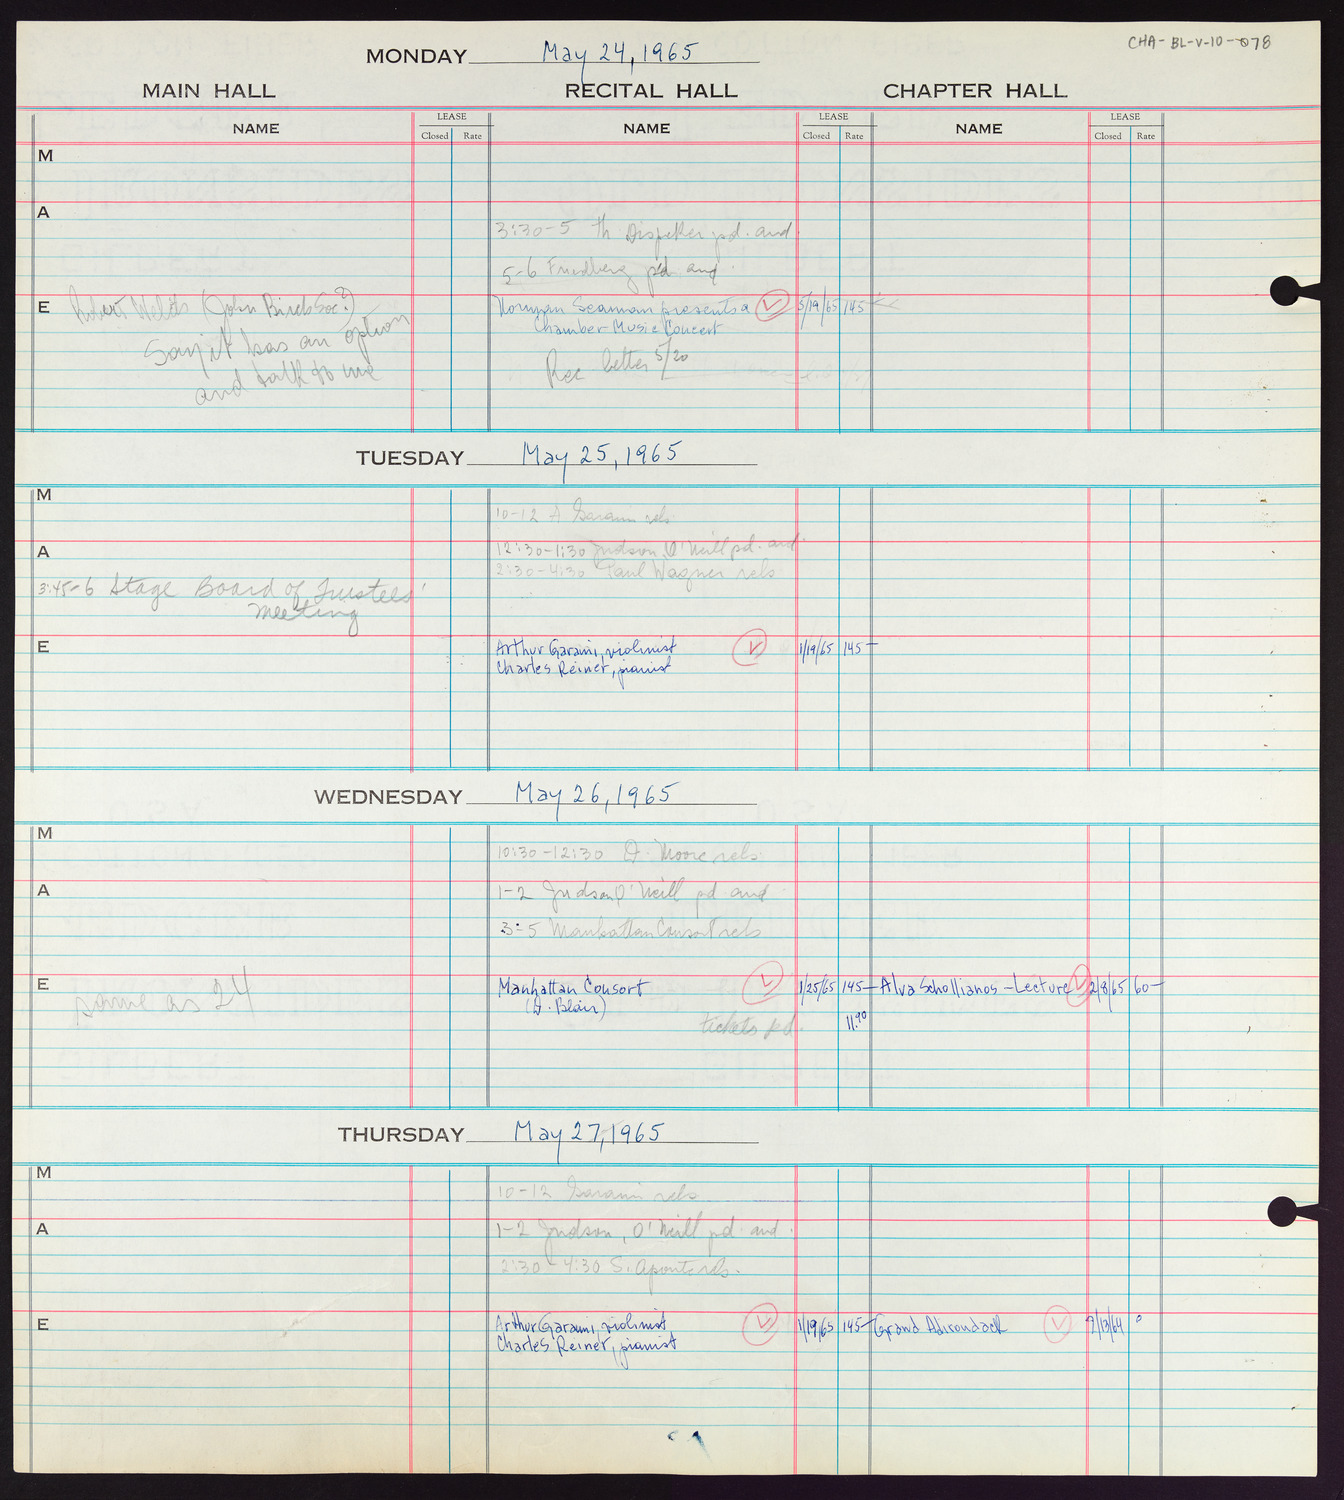 CHA-BL-V-10-078
MONDAY May 24, 1965
MAIN HALL RECITAL HALL CHAPTER HALL
NAME LEASE Closed Rate NAME LEASE Closed Rate NAME LEASE Closed Rate
M
A
3:30-5 Th Dispeker pd. aud
5-6 Friedberg pd aud
E
Robert Welch (John Birch Soc?)
Say it has an option
and talk to me
Norman Seaman presents a 5/19/65 145-
Chamber Music Concert
Rec letter 5/20
TUESDAY May 25, 1965
M
10-12 A Garami rels
A
12:30-1:30 Judson, O'Neill pd. aud.
2:30-4:30 Paul Wagner rels
3:45-6 Stage Board of Trustees'
Meeting
E
Arthur Garami, violinist 1/19/65 145-
Charles Reiner, pianist
WEDNESDAY May 26, 1965
M
10:30-12:30 D. Moore rels
A
1-2 Judson O'Neill pd aud
3-5 Manhattan Consort rels
E
same as 24
Manhattan Consort 1/25/65 145- Alva Schollianos - Lecture 2/8/65 60-
(D. Blair)
tickets pd. 11.90
THURSDAY May 27, 1965
M
10-12 Garami rels
A
1-2 Judson, O'Neill pd. aud.
2:30-4:30 S. Aponte rls.
E
Arthur Garami, violinist 1/19/65 145- Grand Adirondack 7/13/64 0
Charles Reiner, pianist